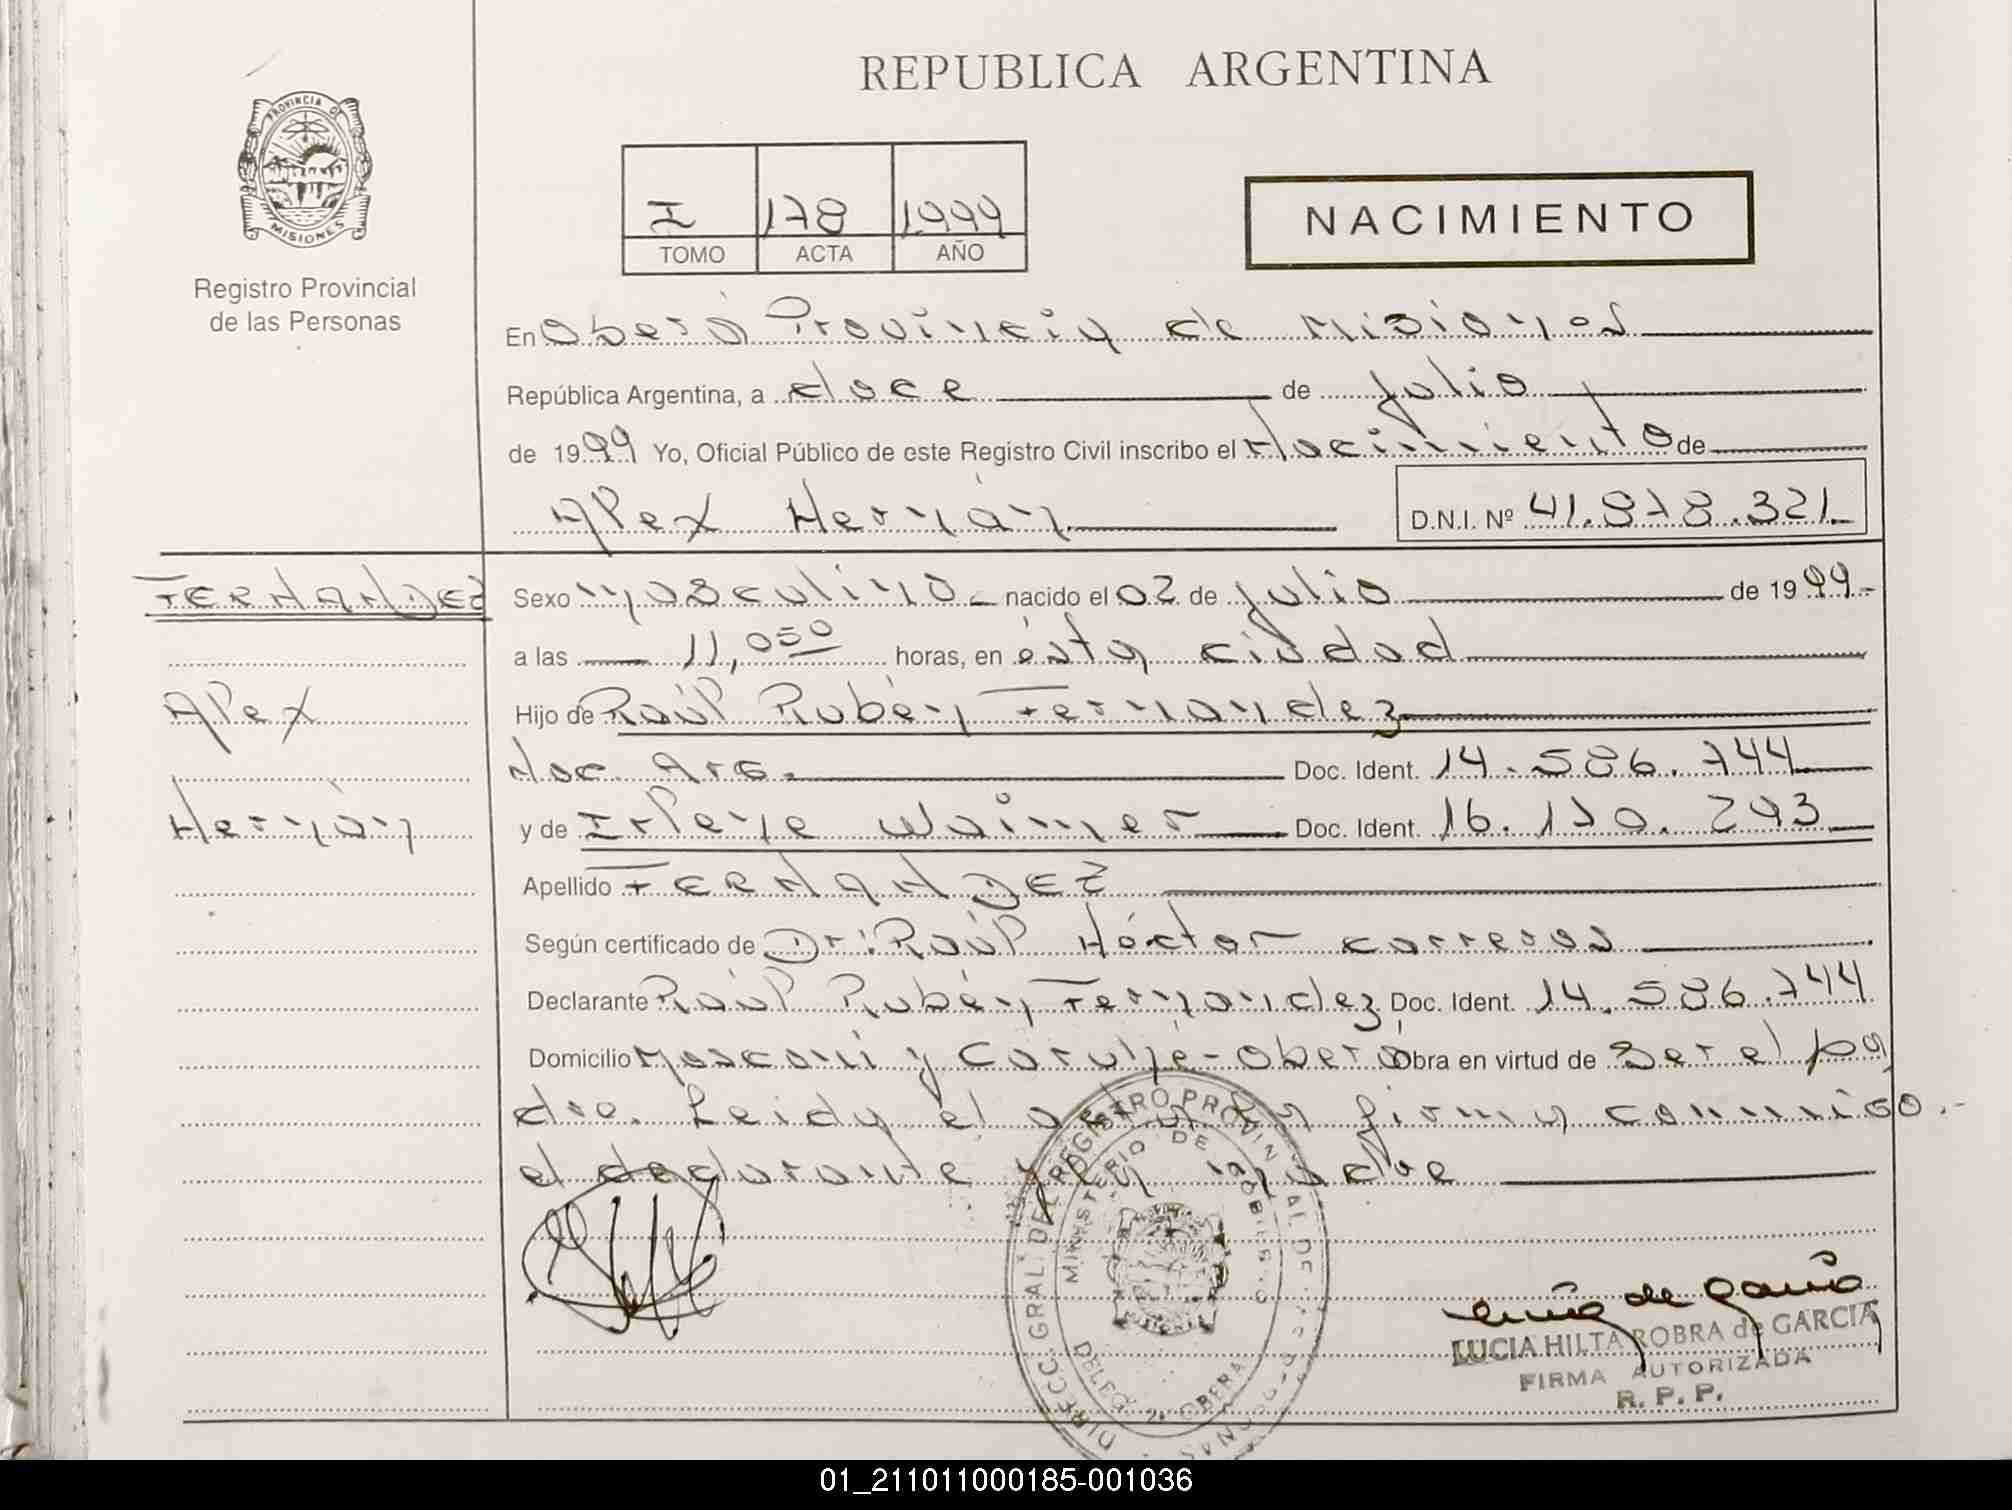 PROVINCIA DE
MISIONES
Registro Provincial
de las Personas
REPUBLICA ARGENTINA
I 178 1999
TOMO ACTA AÑO
NACIMIENTO
En Oberá Provincia de Misiones
República Argentina, a doce de julio
de 1999 Yo, Oficial Público de este Registro Civil inscribo el Nacimiento de
Alex Hernán D.N.I. Nº 41.878.321.
FERNANDEZ
Alex
Hernán
Sexo masculino nacido el 02 de julio de 1999
a las 11,050 horas, en ésta ciudad
Hijo de Raúl Rubén Fernandez
Nac. Arg. Doc. Ident. 14.586.744
y de Irlene Waimer Doc. Ident. 16.170.293
Apellido FERNANDEZ
Según certificado de Dr: Raúl Héctor carreras
Declarante Raúl Rubén Fernandez Doc. Ident. 14.586.744
Domicilio Mosconi y - Oberá Obra en virtud de ser el pa
dre. Leida el acta la firma conmigo.-
el declarante y la madre
DIRECC. GRAL. DEL REGISTRO PROVINCIAL DE LAS PERSONAS
MINISTERIO DE GOBIERNO
DELEG. 2ª OBERA
LUCIA HILTA ROBRA de GARCIA
FIRMA AUTORIZADA
R. P. P.
01_211011000185-001036